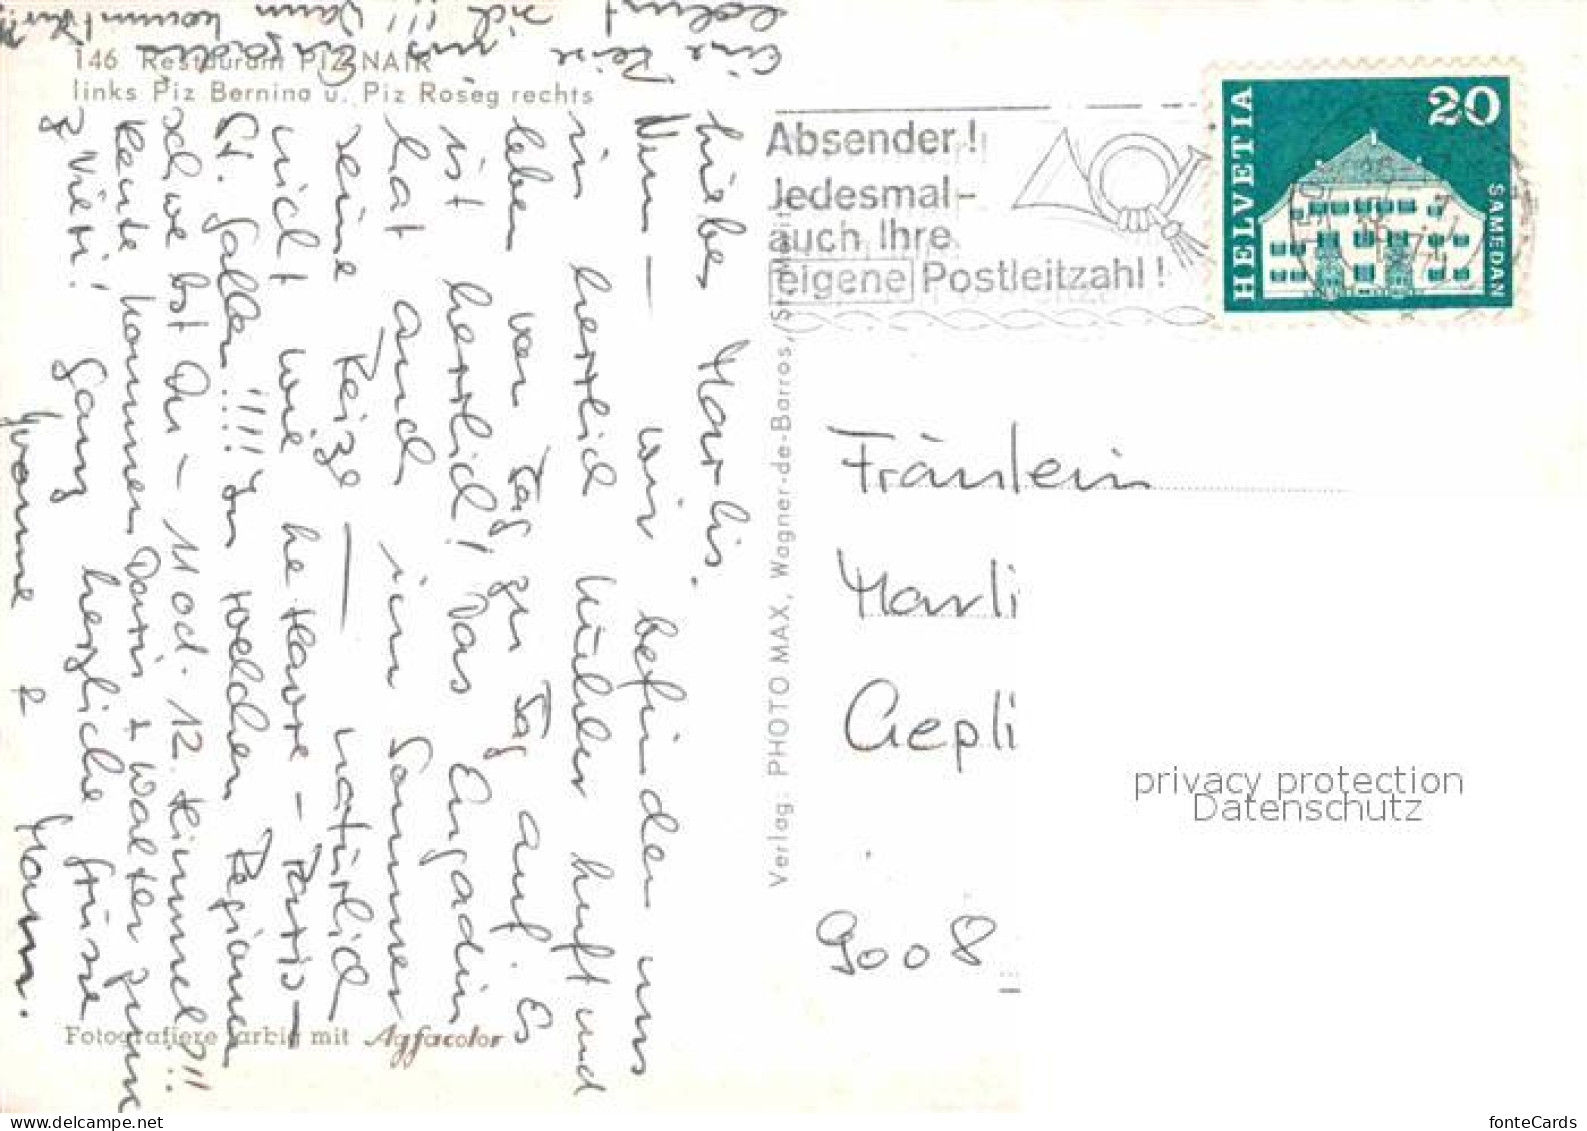 146 Restaurant PIZ NAIR
links Piz Bernina u. Piz Roseg rechts
Liebes Marlis.
Nun – wir befinden uns
in herrlich kühler Luft und
leben von Tag zu Tag auf. Es
ist herrlich! Das Engadin
hat auch im Sommer
seine Reize – natürlich
nicht wie Le Havre – Paris –
St. Gallen!!!! In welchen Regionen
schwebst Du – 11 od. 12. Himmel?!!
Heute kommen Doris & Walter zum
z'Nieri! Ganz herzliche Grüsse
Yvonne & Mann.
Eine Reise ins Engadin
lohnt sich!!! Wann kommt Ihr?
Fotografiere farbig mit Agfacolor
Verlag: PHOTO MAX, Wagner-de-Barros, St. Moritz
Absender!
Jedesmal-
auch Ihre
eigene Postleitzahl!
HELVETIA
20
SAMEDAN
Fräulein
Marli
Gepli
9008
privacy protection
Datenschutz
www.ansichtskarten-center.de
fonteCards